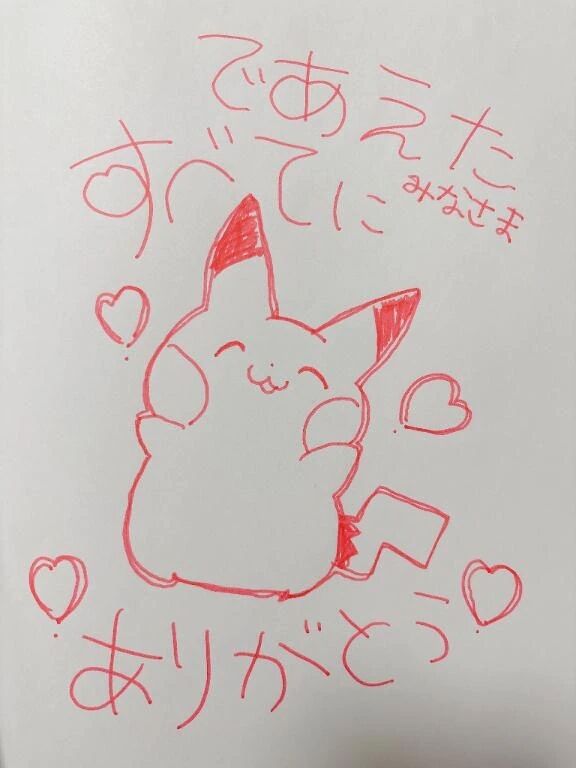 であえた
すべてに
みなさま
ありがとう